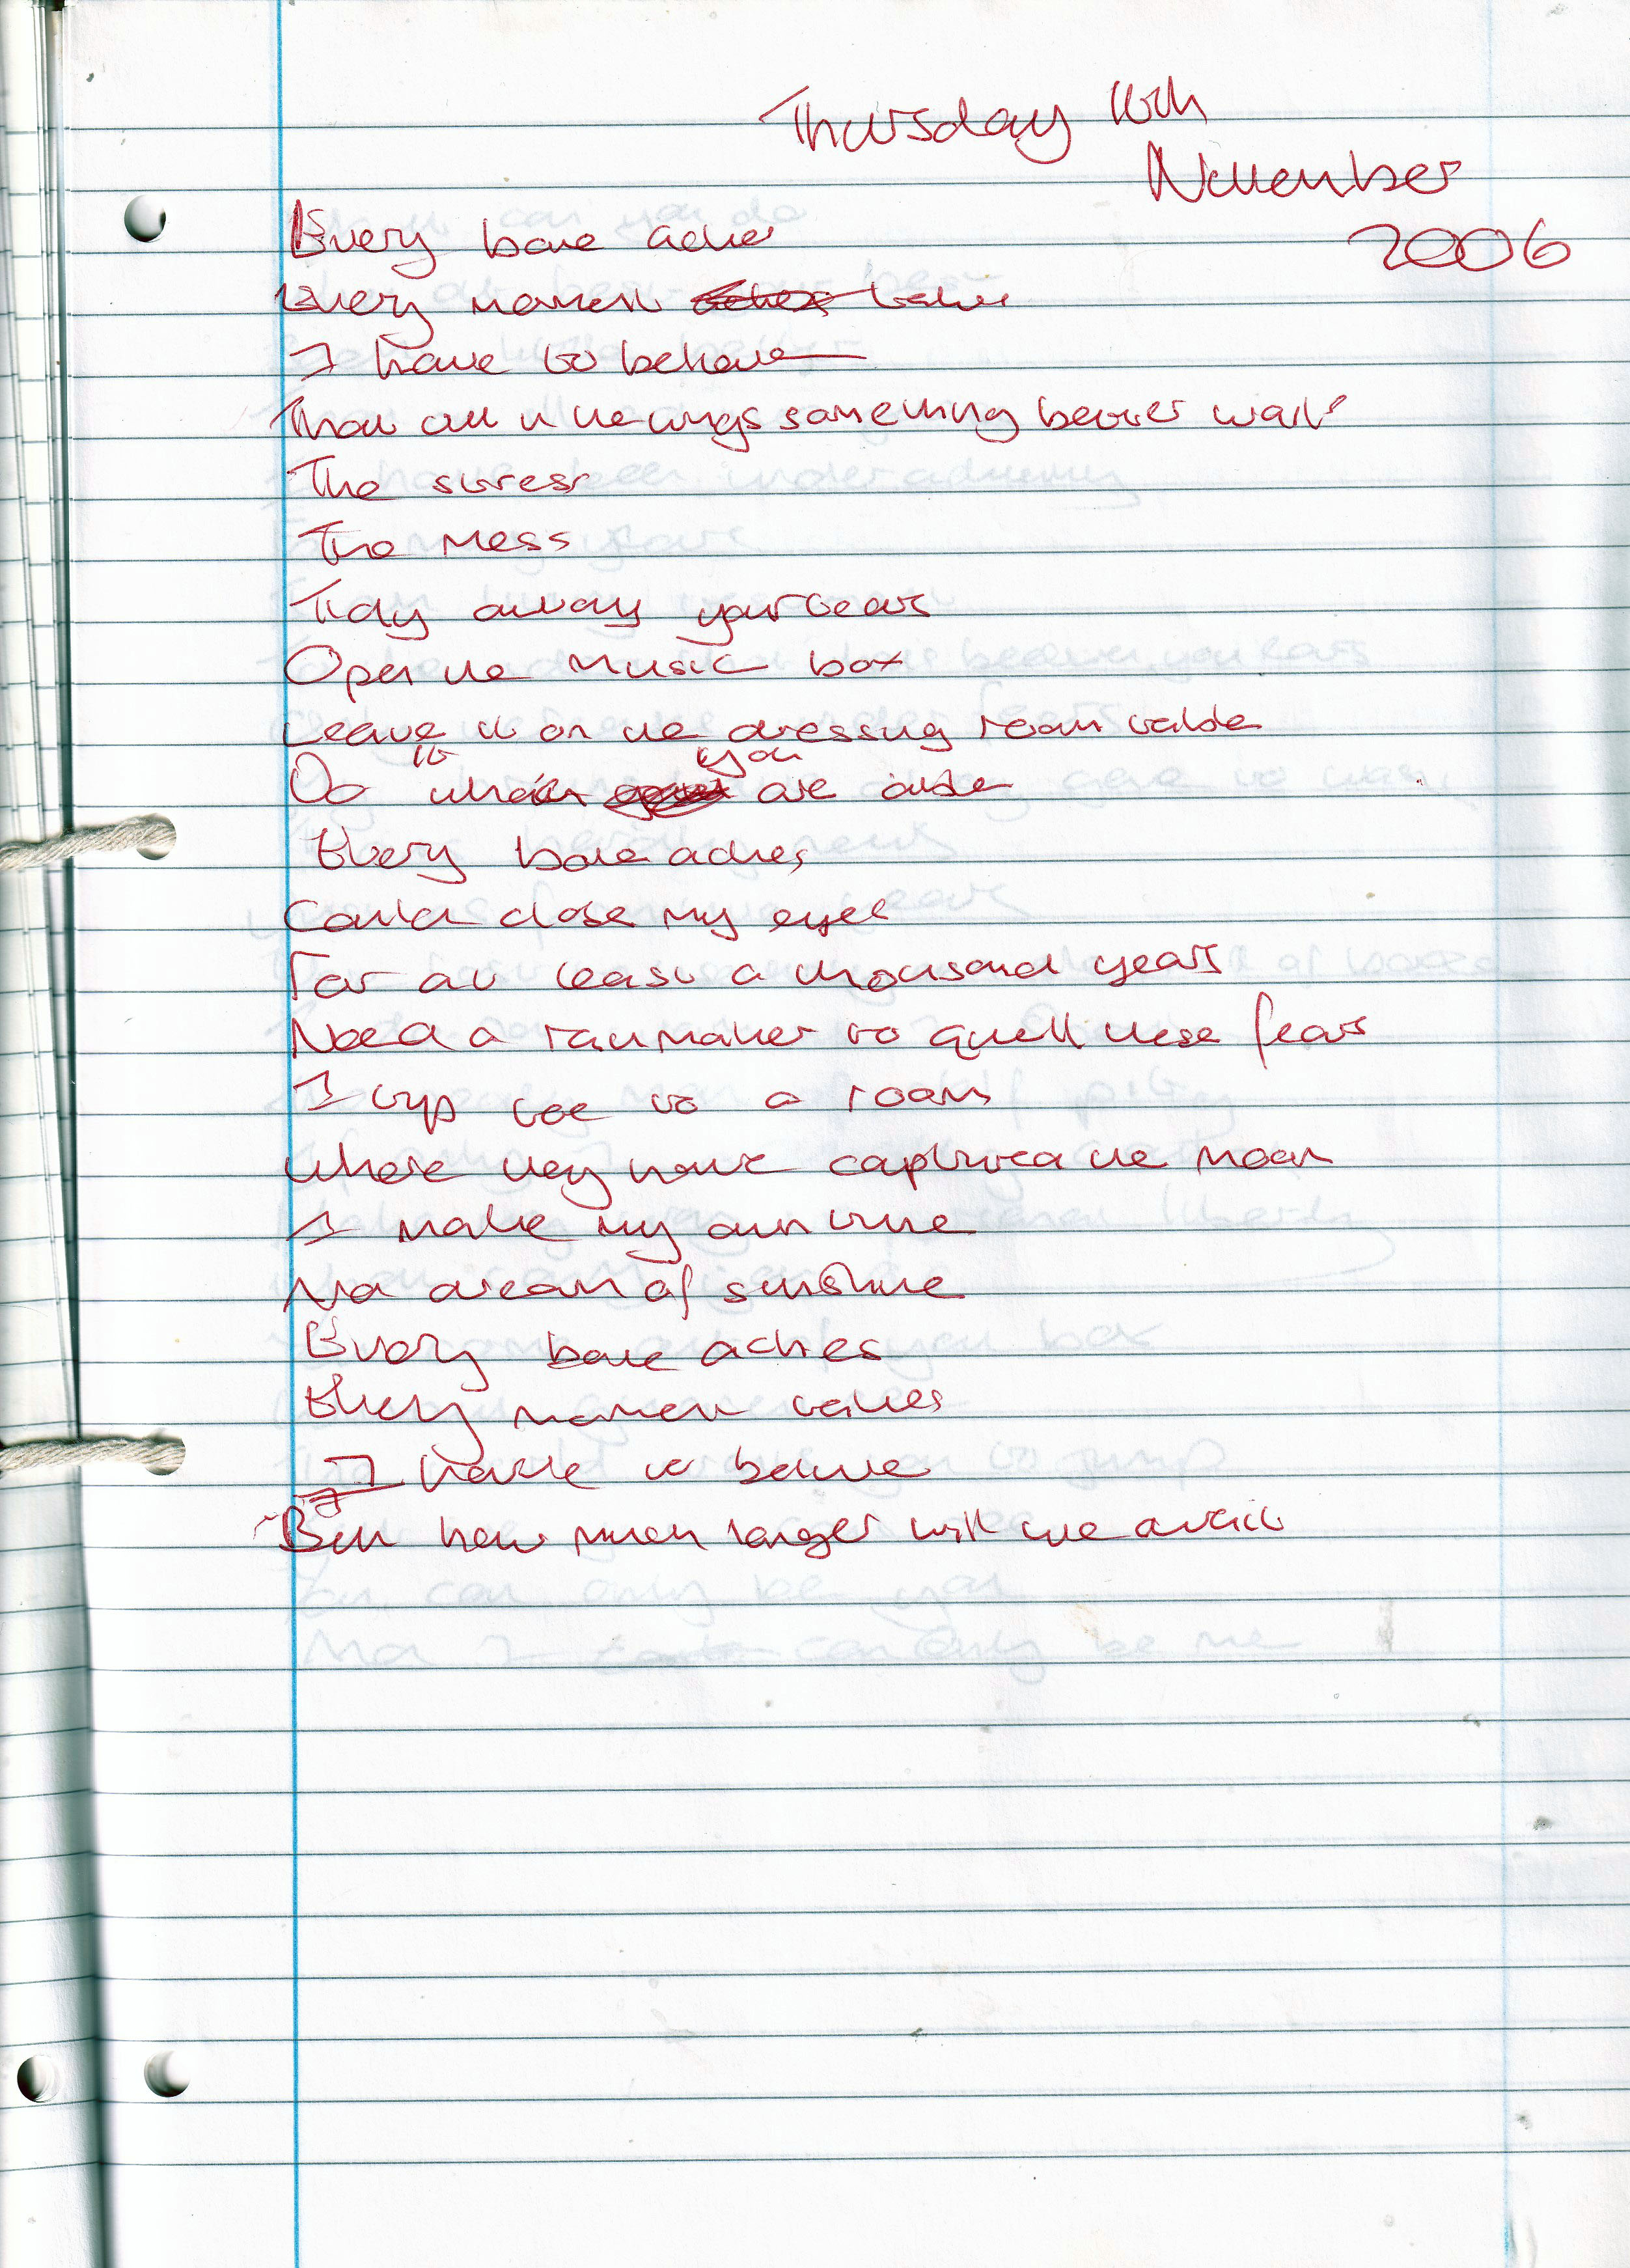 Thursday 16th
November
2006
Every bone aches
Every moment takes
I have to believe
That in the wings something better waits
The stress
The mess
Tidy away your tears
Open the music box
Leave it on the dressing room table
Do it when you are able
Every bone aches
Could close my eyes
For at least a thousand years
Need a rainmaker to quell these fears
I tip toe to a room
Where they have captured the moon
I make my own time
And dream of sunshine
Every bone aches
Every moment takes
I have to believe
But how much longer will we await